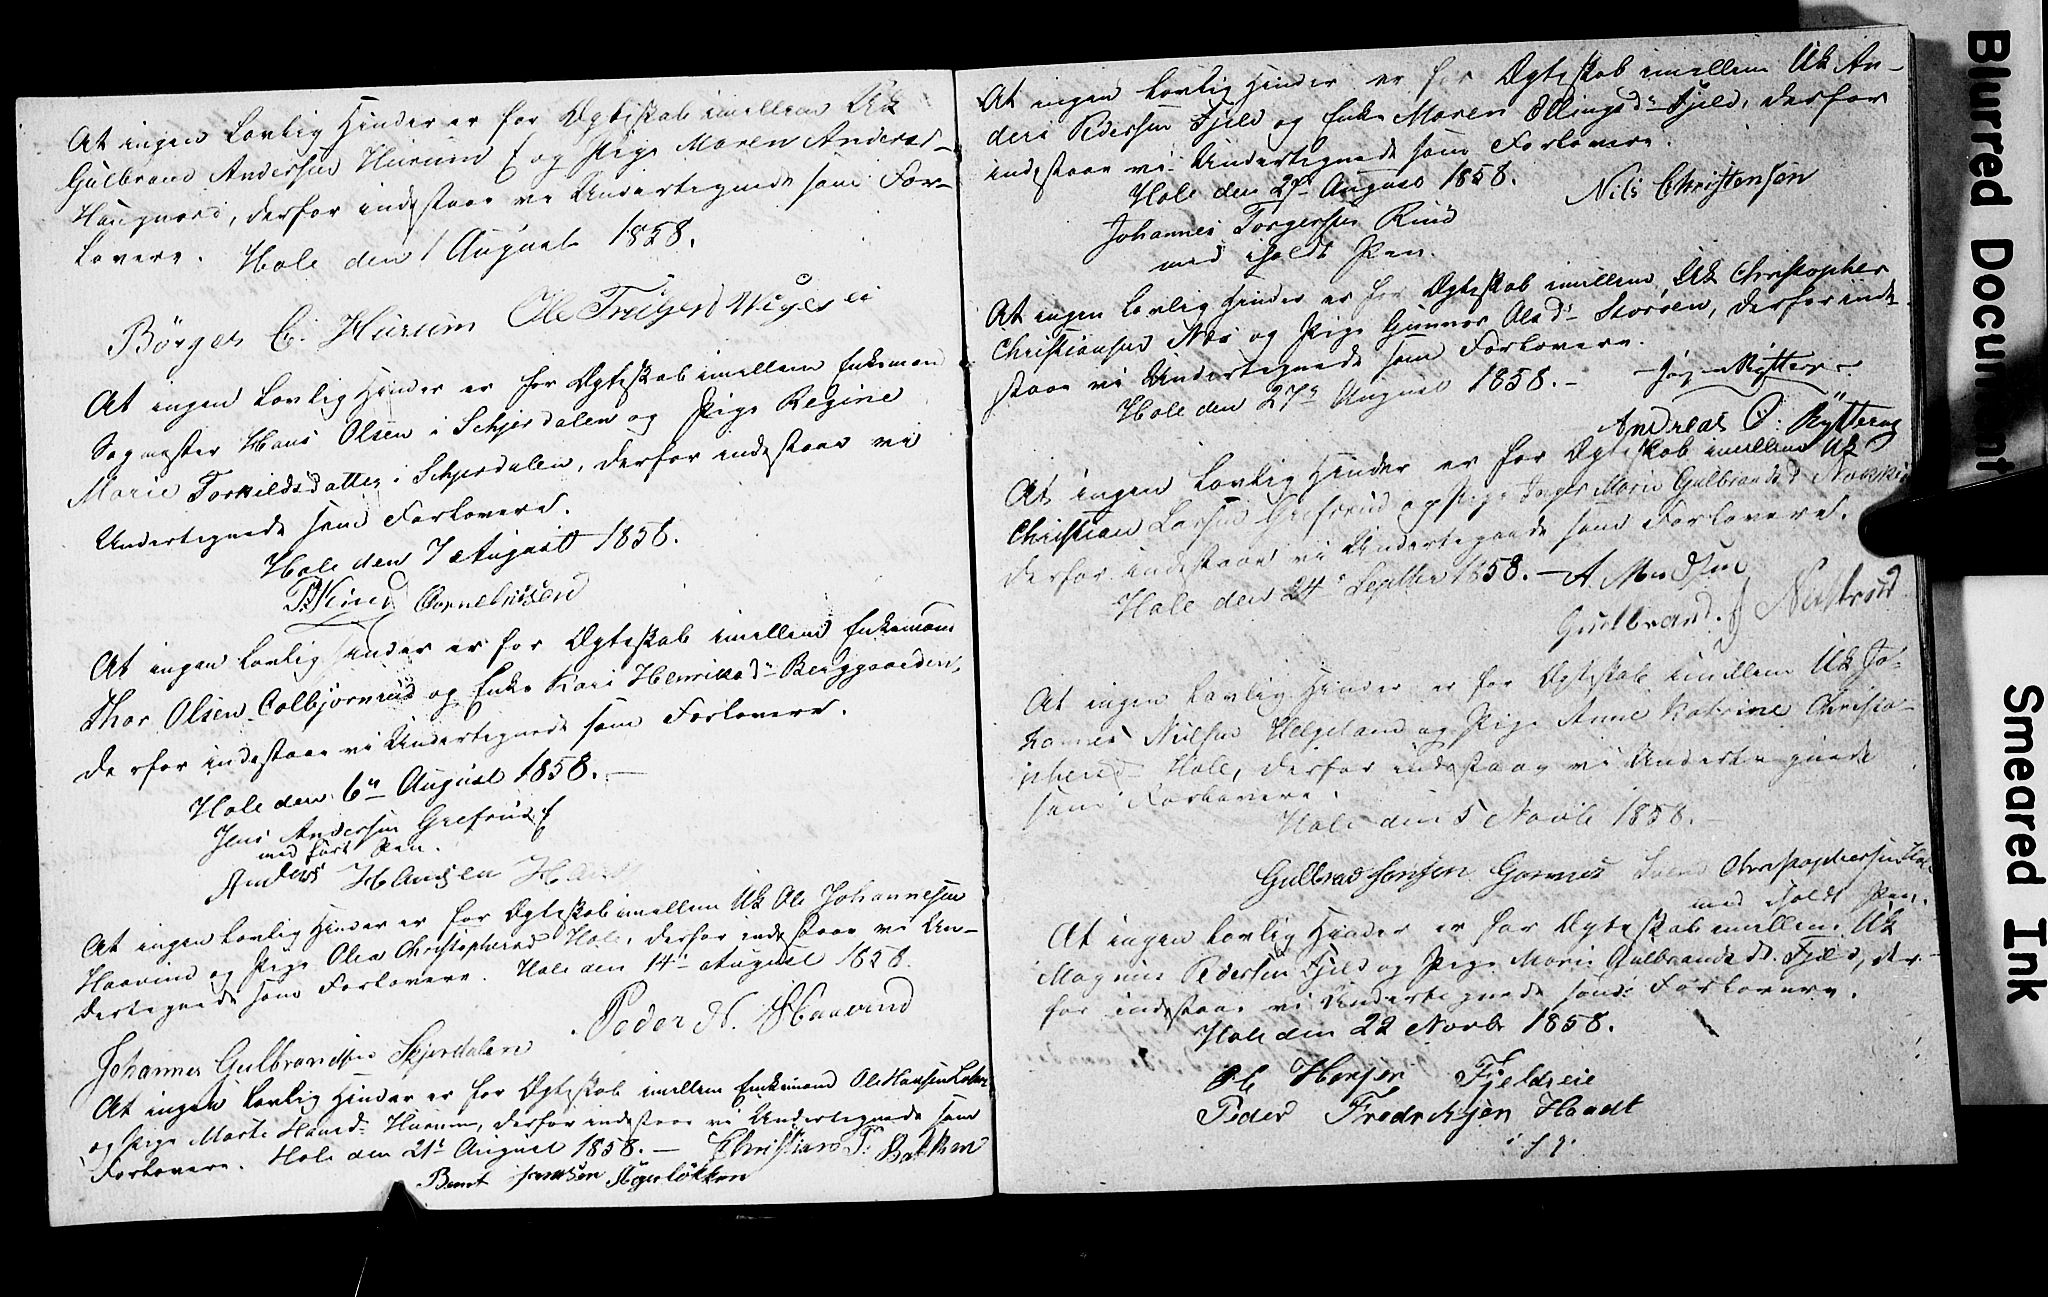 At ingen Lovlig Hinder er for Ægteskab imellem Uk
Gulbrand Andersen Hurum E og Pige Maren Andersd
Haugnord, derfor indestaae vi Undertegnede som For-
lovere. Hole den 1 August 1858.
Börger C. Hurum Ole
At ingen Lovlig Hinder er for Ægteskab imellem Enkemand
Sagmester Hans Olsen i Schjerdalen og Pige Regine
Marie Torkildsdatter i Schjerdalen, derfor indestaae vi
Undertegnede som Forlovere.
Hole den 7 August 1858.
Corneliusen
At ingen Lovlig Hinder er for Ægteskab imellem Enkemand
Thor Olsen Colbjørnrud og Enke Kari Henriksdr Berggaarden,
derfor indestaae vi Undertegnede som Forlovere.
Hole den 6te August 1858. —
Jens Andersen Grefsrud E
med ført Pen.
Anders Hansen
At ingen Lovlig Hinder er for Ægteskab imellem Uk Ole Johannesen
Haavind og Pige Olea Christophersd Hole, derfor indestaae vi Un-
dertegnede som Forlovere. Hole den 14de August 1858.
Peder N. Haavind
Johannes Gulbrandsen Skjerdalen
At ingen Lovlig Hinder er for Ægteskab imellem Enkemand Ole Hansen
og Pige Marte Hansdr Hurum, derfor indestaae vi Undertegnede som
Forlovere. Hole den 21de August 1858. — Christian F. Bakken
Bernt Jensen Ågerløkken
At ingen Lovlig Hinder er for Ægteskab imellem Uk An-
ders Pedersen Fjeld og Enke Maren Ellingsdr Fjeld, derfor
indestaae vi Undertegnede som Forlovere.
Hole den 27de August 1858.
Nils Christensen
Johannes Torgersen Rud
med iholdt Pen.
At ingen Lovlig Hinder er for Ægteskab imellem Uk Christopher
Christiansen Næs og Pige Gunnor Olsdr Storøen, derfor inde-
staae vi Undertegnede som Forlovere.
Hole den 27de August 1858. —
Jörgen Rytterager
Andreas O: Rytterag
At ingen Lovlig Hinder er for Ægteskab imellem Uk
Christian Larsen Grefsrud og Pige Inger Marie Gulbrandsd
derfor indestaae vi Undertegnede som Forlovere.
Hole den 24de Septbr 1858. — A Madsen
Gudbrand.
At ingen Lovlig Hinder er for Ægteskab imellem Uk Jo-
hannes Nielsen Helgeland og Pige Anne Katrine Christo-
phersd Hole, derfor indestaae vi Undertegnede
som Forlovere.
Hole den 5 Novb 1858. —
Gulbrand Jensen Gomnes Svend Christophersen Hole
med iholdt Pen.
At ingen Lovlig Hinder er for Ægteskab imellem Uk
Magnus Pedersen Fjeld og Pige Marie Gulbrandsdt. Fjeld, der-
for indestaae vi Undertegnede som Forlovere.
Hole den 22 Novbr 1858.
Ole Hansen Fjeldseie
Peder Fredriksen Haadt
Blurred Document
Smeared Ink